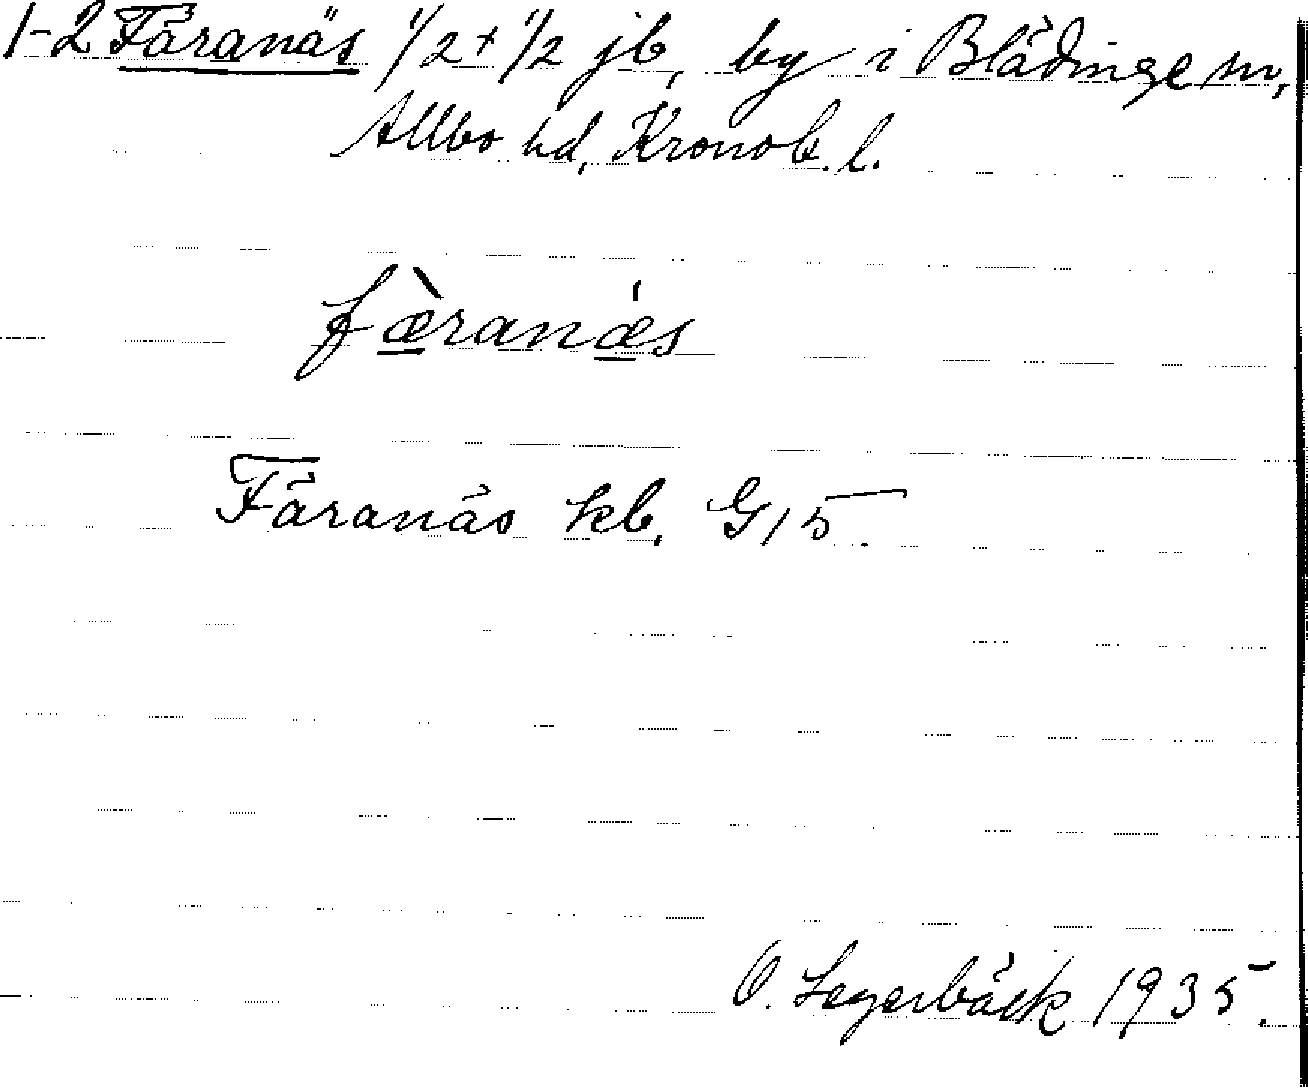 1-2 Färanäs 1/2 + 1/2 jb, by i Blädinge sn,
Allbo hd, Kronob. l.
fæ̀ranæ̀s
Färanäs kb. G15.
O. Segerbäck 1935.